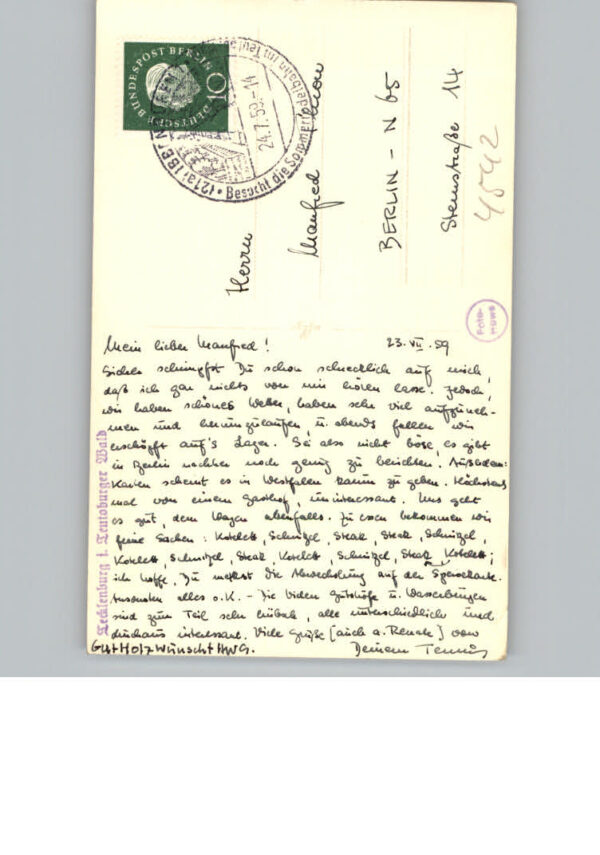 DEUTSCHE BUNDESPOST BERLIN
10
(21a) IBBENBÜREN
24.7.59.-14
Besucht die Sommerrodelbahn im Teutob
Herrn
Manfred
BERLIN - N 65
Sternstraße 14
4542
Foto-
HUWE
Mein lieber Manfred!
23. VII. 59
Sicher schimpfst Du schon schrecklich auf mich,
daß ich gar nichts von mir hören lasse. Jedoch,
wir haben schönes Wetter, haben sehr viel aufzuneh-
men und herumzulaufen, u. abends fallen wir
erschöpft auf's Lager. Sei also nicht böse, es gibt
in Berlin nachher noch genug zu berichten. Außerdem:
Karten scheint es in Westfalen kaum zu geben. Höchstens
mal von einem Gasthof, uninteressant. Uns geht
es gut, dem Wagen ebenfalls. Zu essen bekommen wir
feine Sachen: Kotelett, Schnitzel, Steak, Steak, Schnitzel,
Kotelett, Schnitzel, Steak, Kotelett, Schnitzel, Steak, Kotelett;
ich hoffe, Du merkst die Abwechslung auf der Speisekarte.
Ansonsten alles o.K. - Die vielen Gutshöfe u. Wasserburgen
sind zum Teil sehr hübsch, alle unterschiedlich und
durchaus interessant. Viele Grüße [auch a. Renate] von
Deinem Tennis
Gut Holz wünscht HWG.
Tecklenburg i. Teutoburger Wald